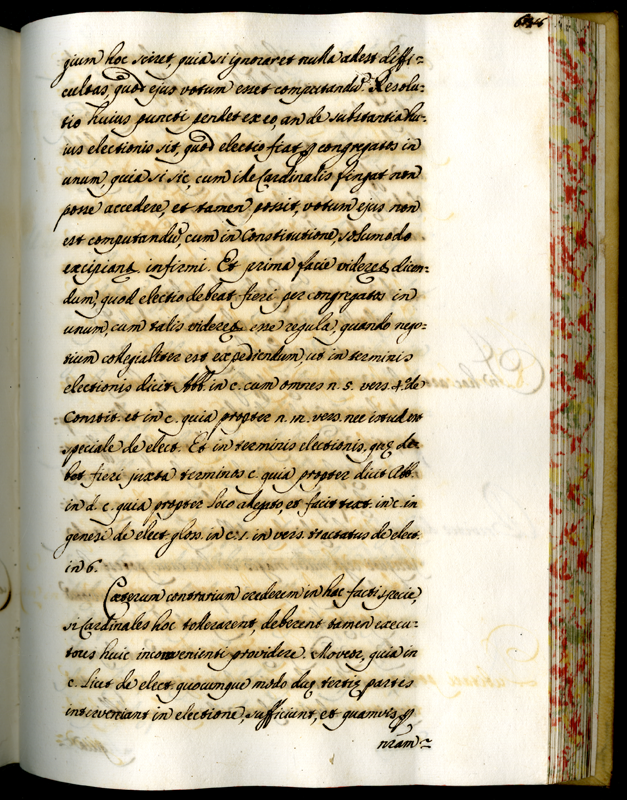 gium hoc sciret, quia si ignoraret nulla adest diffi=
cultas, quod ejus votum esset computandu. Resolu=
tio huius puncti pendet ex eo, an de substantia hu=
ius electionis sit, quod electio fiat p congregatos in
unum, quia si sic, cum ille Cardinalis fingat non
posse accedere, et tamen possit, votum ejus non
est computandu, cum in Constitutione, solumodo
excipiant infirmi. Et prima facie videret dicen=
dum, quod electio debeat fieri per congregatos in
unum, cum talis videret esse regula, quando nego=
tium collegialiter est expediendum, ut in terminis
electionis dicit Abb. in c. cum omnes n. 5. vers. 4. de
Constit. et in c. quia propter n. m. vers. nec istud est
speciale de elect. Et in terminis electionis, quę de=
bet fieri juxta terminos c. quia propter dicit Abb.
in d. c. quia propter loco allegto, et facit text. in c. in
genesi de elect. gloss. in c. 1. in vers. tractatus de elect.
in 6.
Cæterum contrarium crederem in hac facti specie,
si Cardinales hoc tollerarent, deberent tamen execu=
tores huic inconvenienti providere. Moveor, quia in
c. licet de elect. quocumque modo duę tertię partes
interveniant in electione, sufficiunt, et quamvis p
nram=